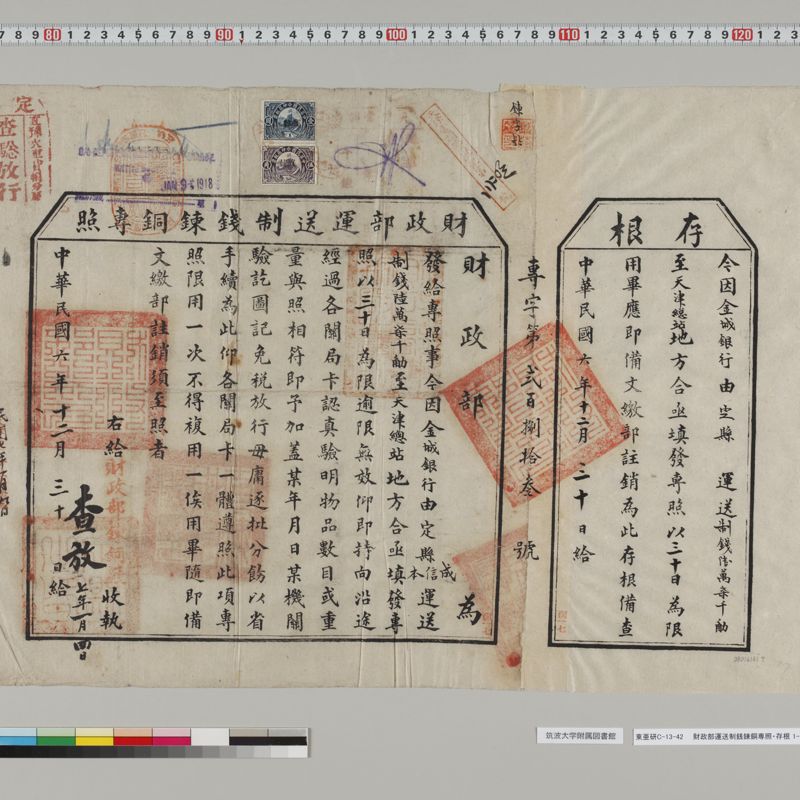 存根
今因金城銀行由定縣 運送制錢陸萬柒千觔
至天津總站地方合亟填發專照以三十日為限
用畢應即備文繳部註銷為此存根備查
中華民國六年十二月三十日給
專字第貳百捌拾叁號
財政部運送制錢鍊銅專照
財政部為
發給專照事今因金城銀行由定縣運送
成信本
制錢陸萬柒千觔至天津總站地方合亟填發專
照以三十日為限逾限無效仰即持向沿途
經過各關局卡認真驗明物品數目或重
量與照相符即予加蓋某年月日某機關
驗訖圖記免稅放行毋庸逐批分飭以省
手續為此仰各關局卡一體遵照此項專
照限用一次不得複用一俟用畢隨即備
文繳部註銷須至照者
右給 收執
中華民國六年十二月三十日給
查放
七年一月四日
定
查驗放行
JAN 9 1918
筑波大学附属図書館
東亜研C-13-42 財政部運送制銭錬銅専照・存根 1-